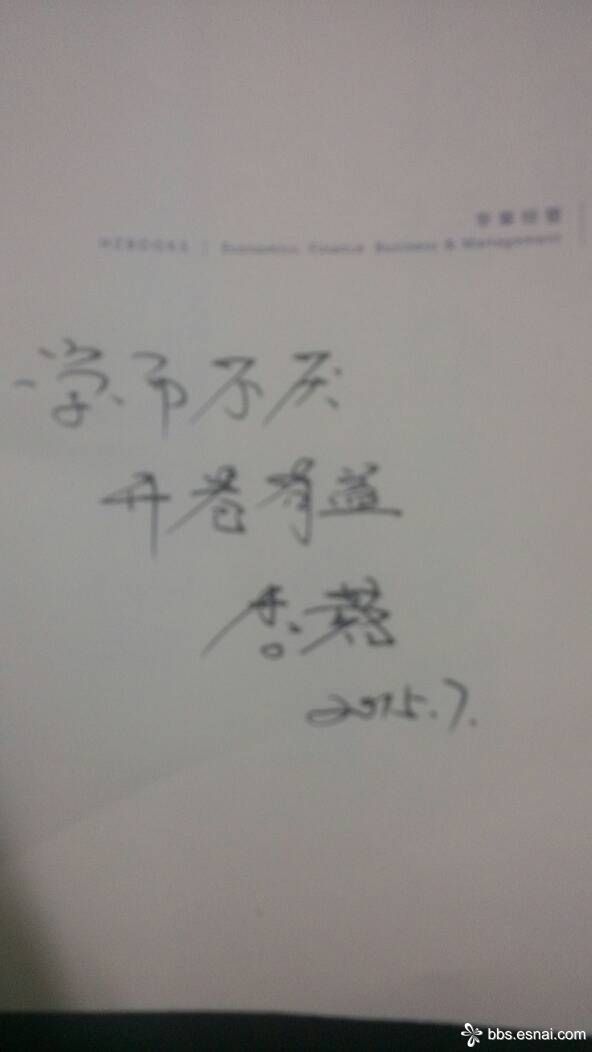 华章经管
HZBOOKS | Economics Finance Business & Management
学而不厌
开卷有益
2015.7.
bbs.esnai.com